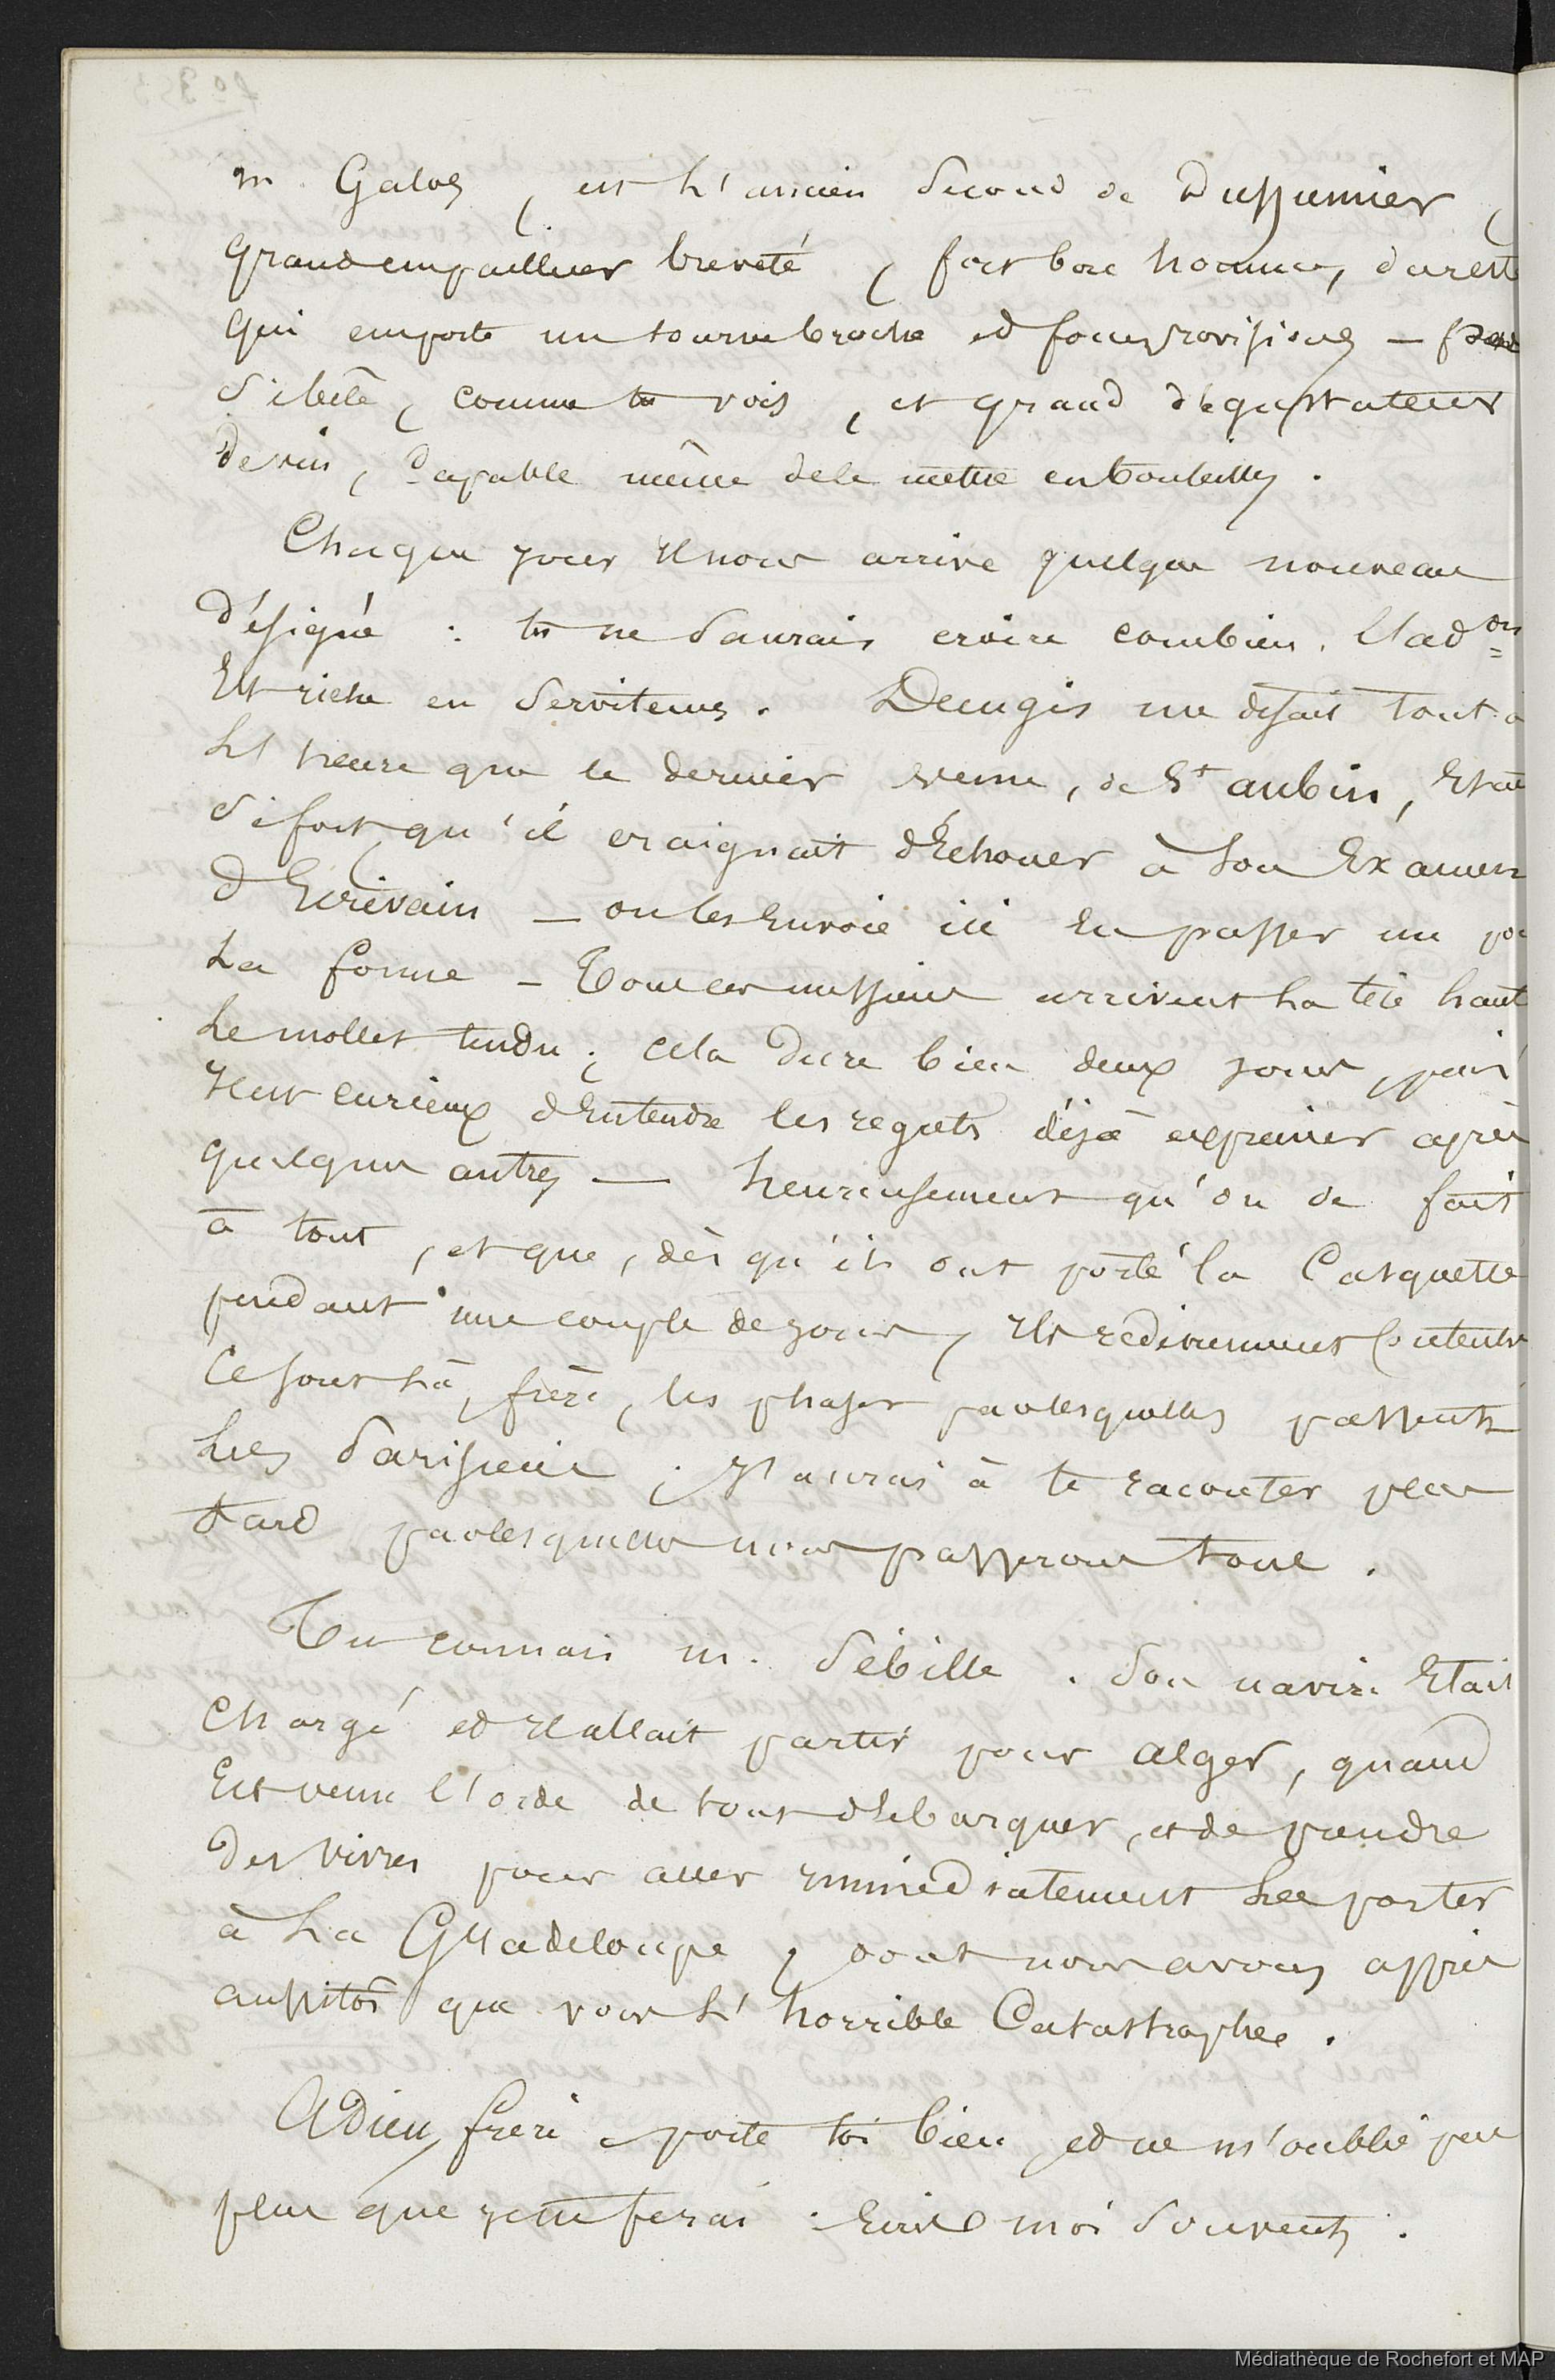 m. Galos, est l'ancien second de Dussumier,
grand empailleur breveté, fort bon homme, du reste
qui emporte un tournebroche et fours provisions — pas
si bête, comme tu vois, et grand dégustateur
de vin, capable même de le mettre en bouteilles.
Chaque jour il nous arrive quelque nouveau
désigné : tu ne saurais croire combien l'ad^on
est riche en serviteurs. me disait tout à
l'heure que le dernier venu, de St aubin, était
si fort qu'il craignait d'échouer à son Examen
d'Ecrivain — on les envoie ici en passer un po
la forme — Tous ces messieurs arrivent la tête haut
le mollet tendu ; cela dure bien deux jours, puis
il est curieux d'entendre les regrets déjà exprimés après
quelques autres — heureusement qu'on se fait
à tout, et que, dès qu'ils ont porté la Casquette
pendant une couple de jours, ils redeviennent contents
Ce sont là, frère, les phases par lesquelles passent
les Parisiens ; j'aurai à te raconter plus
tard par lesquelles nous passerons tous.
Tu connais m. Sébille. Son navire était
chargé et il allait partir pour alger, quand
est venu l'ordre de tout débarquer, et de prendre
des vivres pour aller immédiatement les porter
à la Guadeloupe, dont nous avons appris
aussitôt que vous l'horrible Catastrophe.
Adieu, frère, porte toi bien et ne m'oublie pas
plus que je ne ferai : Ecris moi souvent.
Médiathèque de Rochefort et MAP